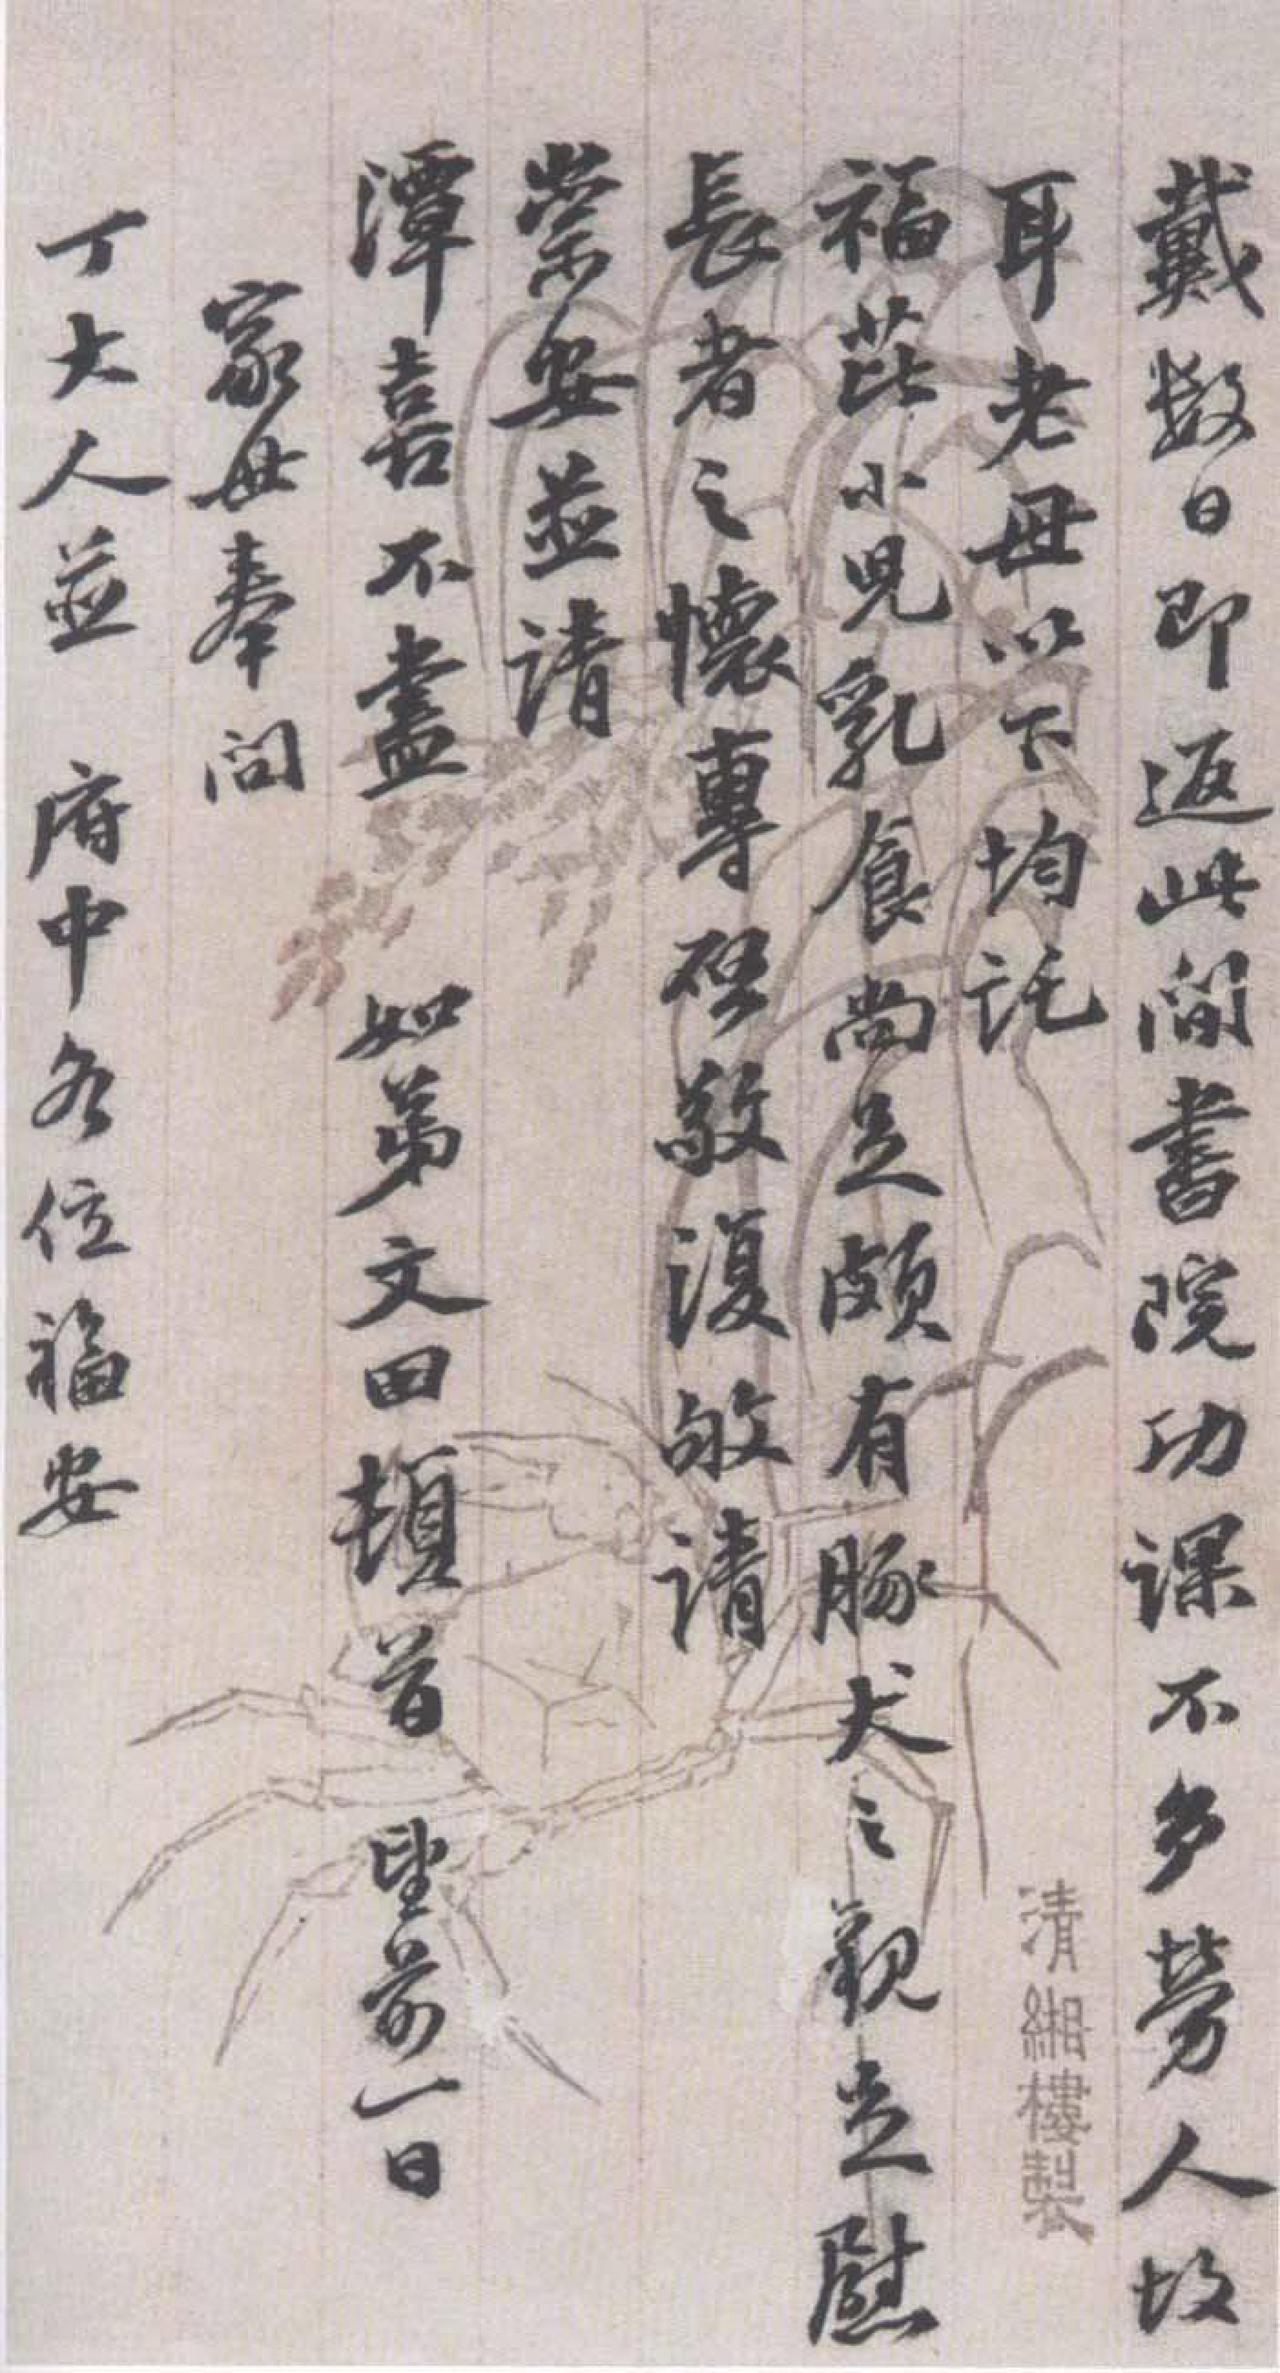 戴數日即返此間書院功課不多勞人故
耳老母以下均託
福芘小兒乳食尚足頗有豚犬之觀立慰
長者之懷專啓敬復敬請
崇安並請
潭喜不盡 如弟文田頓首 望前一日
家母奉問
丁大人並 府中各位福安
清緗樓製